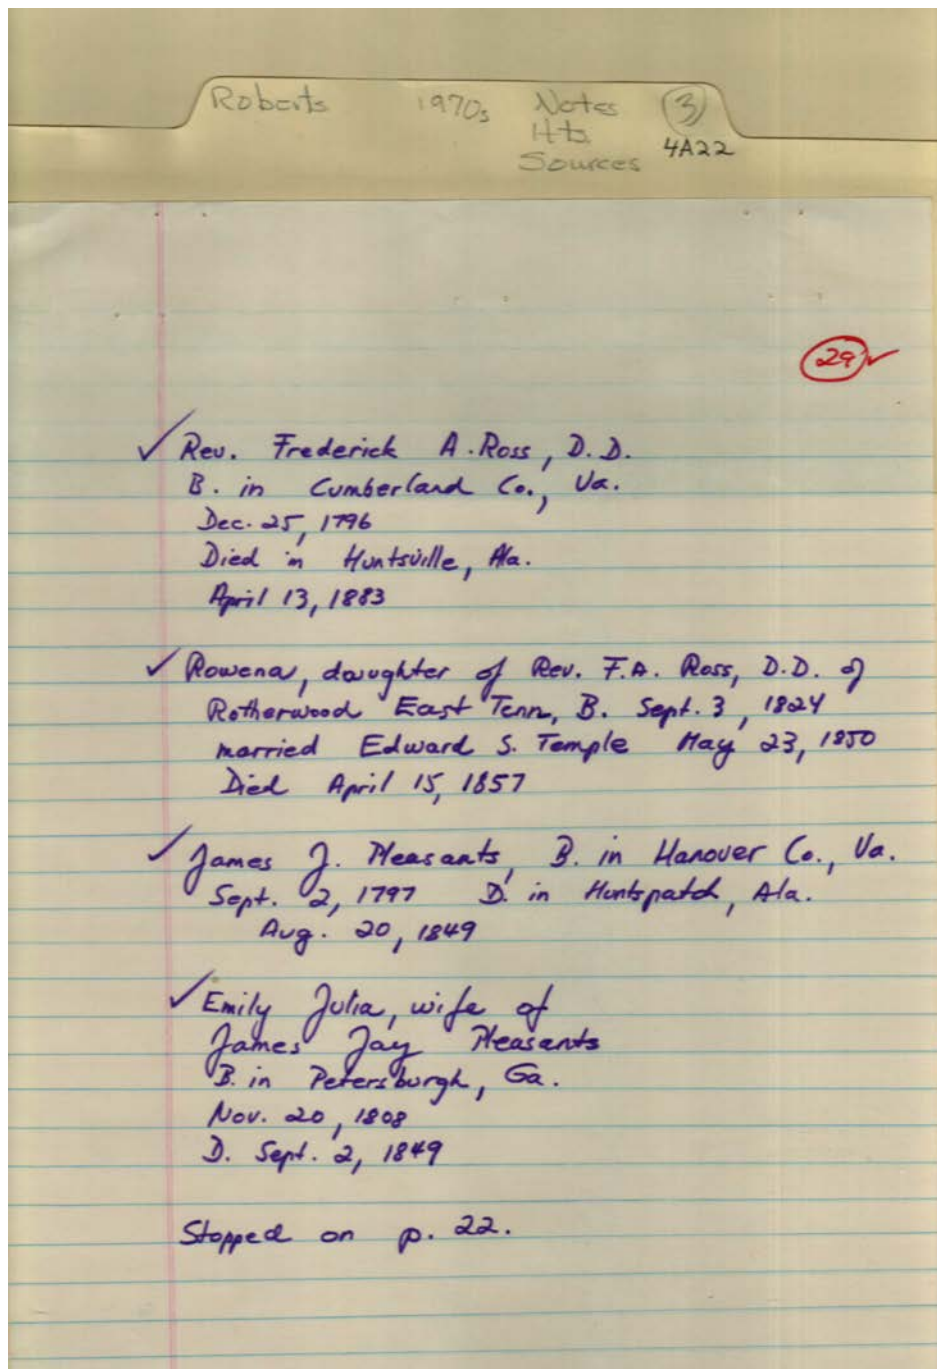 Roberts 1970s Notes 3
Hts.
Sources 4A22
29 ✓
✓ Rev. Frederick A. Ross, D.D.
B. in Cumberland Co., Va.
Dec. 25, 1796
Died in Huntsville, Ala.
April 13, 1883
✓ Rowena, daughter of Rev. F.A. Ross, D.D. of
Rotherwood East Tenn, B. Sept. 3, 1824
married Edward S. Temple May 23, 1850
Died April 15, 1857
✓ James J. Pleasants, B. in Hanover Co., Va.
Sept. 2, 1797 D. in Huntspatch, Ala.
Aug. 20, 1849
✓ Emily Julia, wife of
James Jay Pleasants
B. in Petersburgh, Ga.
Nov. 20, 1808
D. Sept. 2, 1849
Stopped on p. 22.